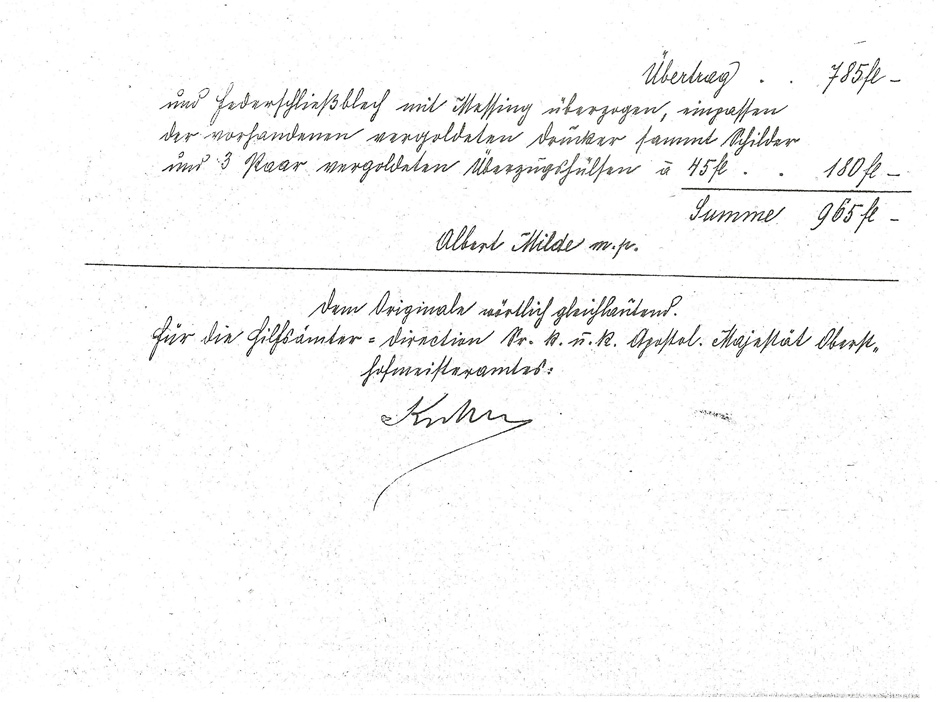 Übertrag . . 785 fl –
und Federschließblech mit Messing überzogen, einpassen
der vorhandenen vergoldeten Drücker sammt Schilder
und 3 Paar vergoldeten Überzugshülsen à 45 fl . . 180 fl –
Summe 965 fl –
Albert Milde m.p.
Dem Originale wörtlich gleichlautend.
Für die Hilfsämter = Direction Sr. k. u. k. Apostol. Majestät Oberst„
hofmeisteramtes: